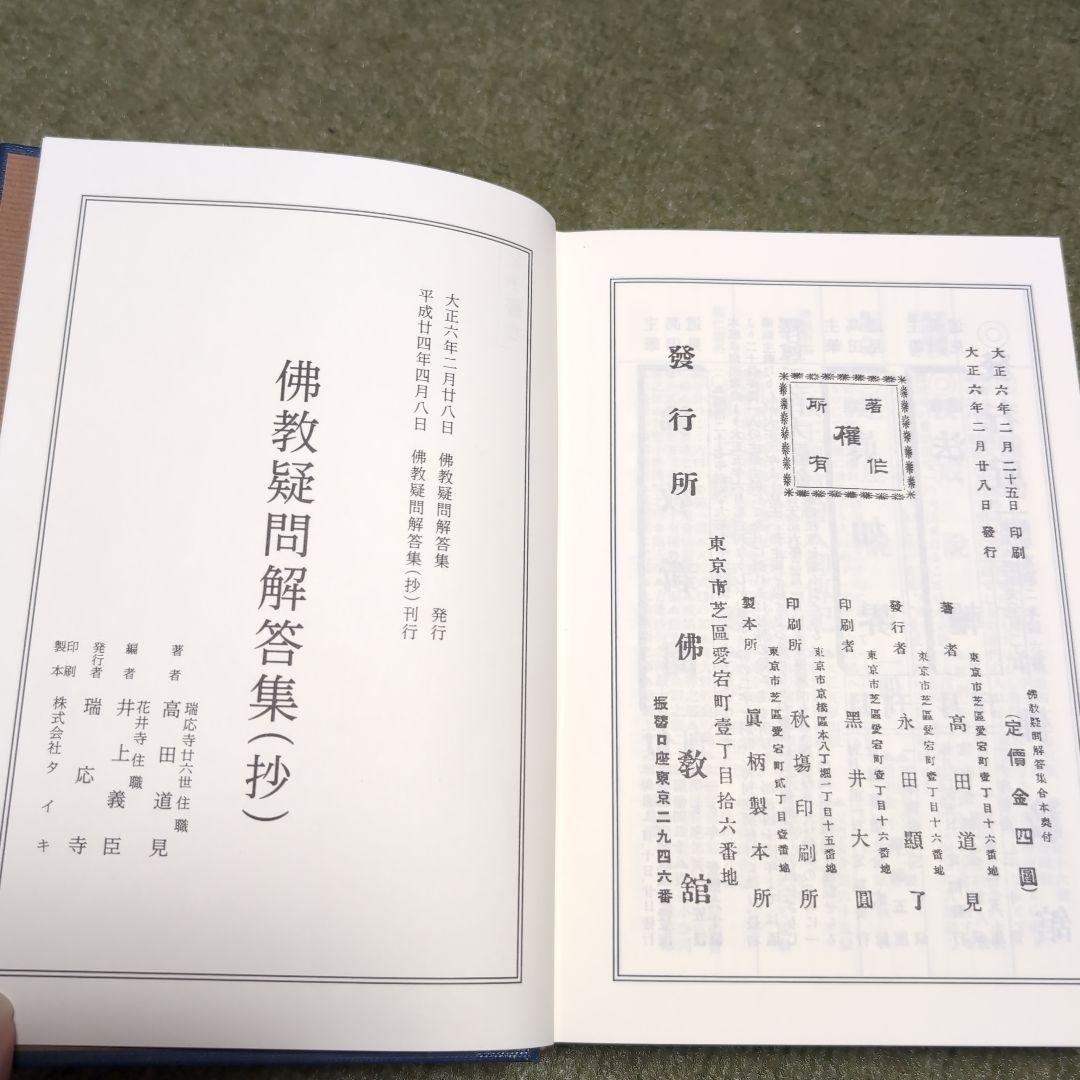 佛教疑問解答集合本奥付
(定價金四圓)
大正六年二月二十五日 印刷
大正六年二月廿八日 發行
著作權所有
東京市芝區愛宕町壹丁目十六番地
著者 高田道見
東京市芝區愛宕町壹丁目十六番地
發行者 永田顯了
東京市芝區愛宕町壹丁目十六番地
印刷者 黑井大圓
東京市京橋區本八丁堀一丁目十五番地
印刷所 秋塲印刷所
東京市芝區愛宕町貳丁目壹番地
製本所 眞柄製本所
東京市芝區愛宕町壹丁目拾六番地
發行所 佛教舘
振替口座東京二九四六番
大正六年二月廿八日 佛教疑問解答集 発行
平成廿四年四月八日 佛教疑問解答集(抄)刊行
佛教疑問解答集(抄)
瑞応寺廿六世住職
著者 高田道見
花井寺住職
編者 井上義臣
発行者 瑞応寺
印刷製本 株式会社タイキ